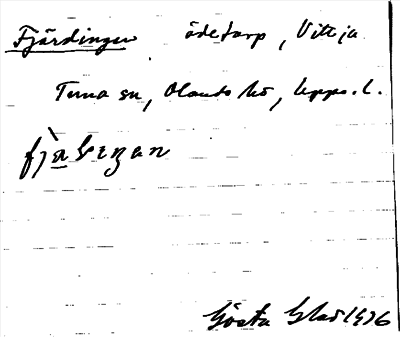 Fjärdingen ödetorp, Vittja
Tuna sn, Olands hd, Upps. l.
Gösta Glas 1976